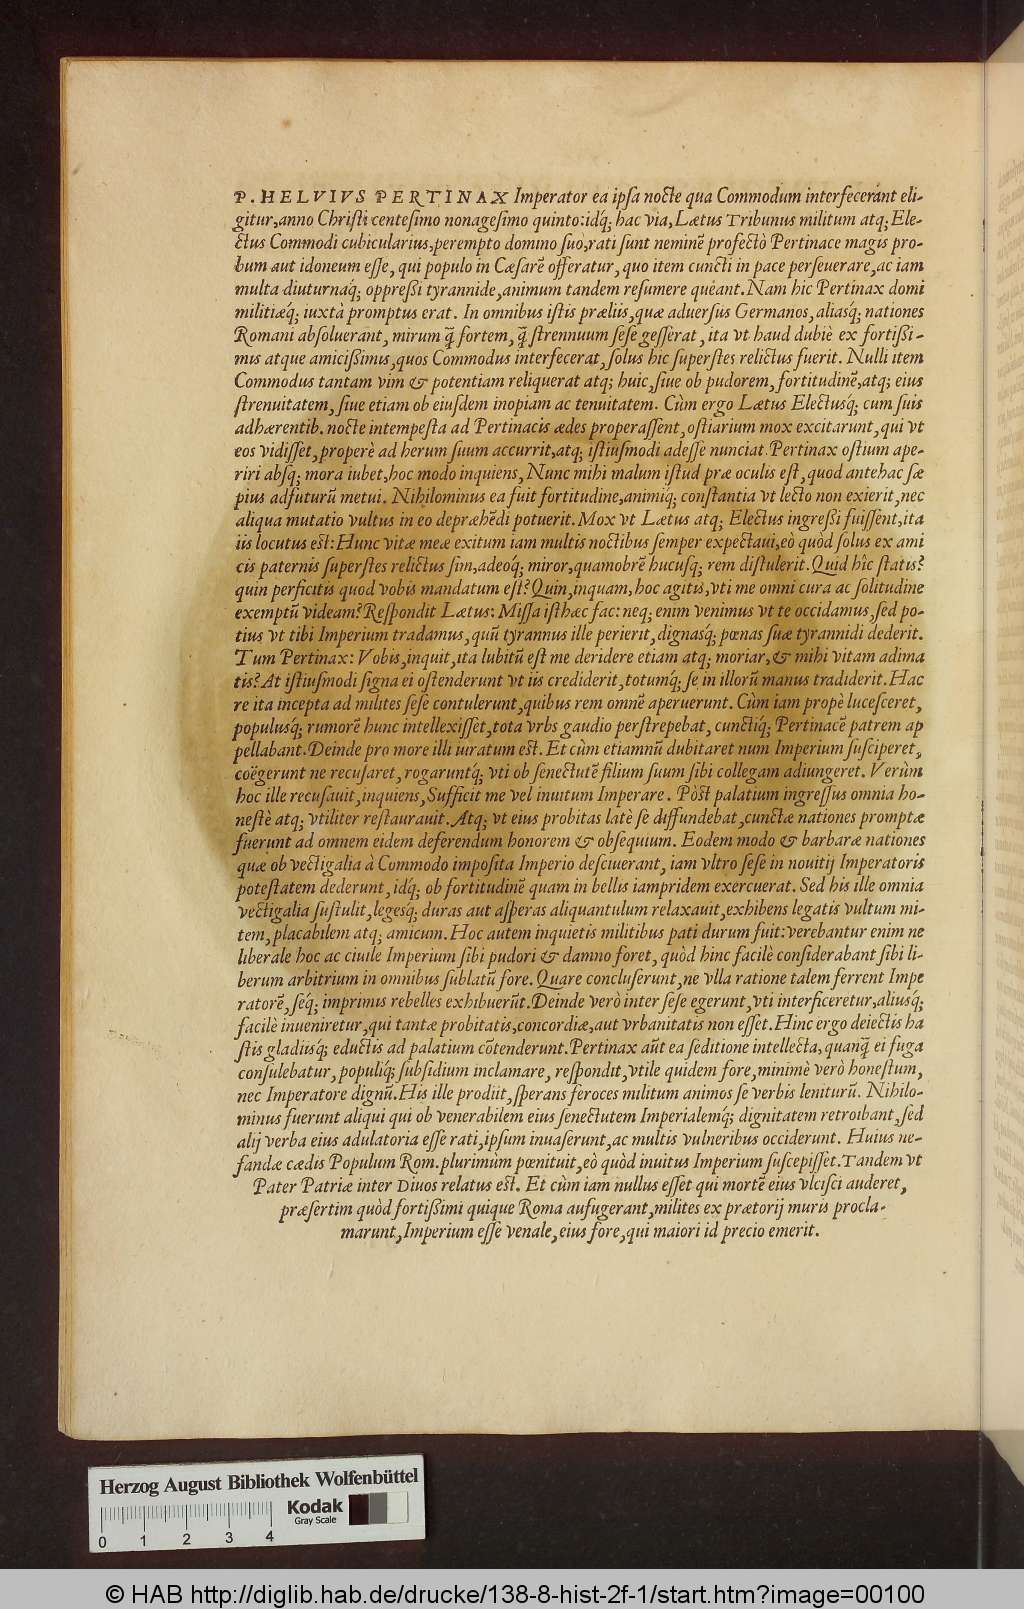 P. HELVIVS PERTINAX Imperator ea ipſa nocte qua Commodum interfeceránt eli-
gitur,anno Chriſti centeſimo nonageſimo quinto:idq́; hac via, Lætus Tribunus militum atq; Ele-
ctus Commodi cubicularius,perempto domino ſuo,rati ſunt neminẽ profectò Pertinace magis pro-
bum aut idoneum eſſe, qui populo in Cæſarẽ offeratur, quo item cuncti in pace perſeuerare, ac iam
multa diuturnaq́; oppreßi tyrannide,animum tandem reſumere quêant. Nam hic Pertinax domi
militiæq́; iuxtà promptus erat. In omnibus iſtis præliis, quæ aduerſus Germanos, aliasq́; nationes
Romani abſoluerant, mirum q̃ fortem, q̃ ſtrennuum ſeſe geſſerat, ita vt haud dubiè ex fortißi-
mis atque amicißimis, quos Commodus interfecerat, ſolus hic ſuperſtes relictus fuerit. Nulli item
Commodus tantam vim & potentiam reliquerat atq; huic, ſiue ob pudorem, fortitudinẽ,atq; eius
ſtrenuitatem, ſiue etiam ob eiuſdem inopiam ac tenuitatem. Cùm ergo Lætus Electusq́; cum ſuis
adhærentib. nocte intempeſta ad Pertinacis ædes properaſſent, oſtiarium mox excitarunt, qui vt
eos vidiſſet, properè ad herum ſuum accurrit, atq; iſtiuſmodi adeſſe nunciat. Pertinax oſtium ape-
riri abſq; mora iubet, hoc modo inquiens, Nunc mihi malum iſtud præ oculis eſt, quod antehac ſæ
pius adfuturũ metui. Nihilominus ea fuit fortitudine, animiq́; conſtantia vt lecto non exierit, nec
aliqua mutatio vultus in eo depræhẽdi potuerit. Mox vt Lætus atq; Electus ingreßi fuiſſent, ita
iis locutus eſt: Hunc vitæ meæ exitum iam multis noctibus ſemper expectaui, eò quòd ſolus ex ami
cis paternis ſuperſtes relictus ſim, adeoq́; miror, quamobrẽ hucuſq; rem diſtulerit. Quid hîc ſtatis?
quin perficitis quod vobis mandatum eſt? Quin, inquam, hoc agitis, vti me omni cura ac ſolitudine
exemptũ videam? Reſpondit Lætus: Miſſa iſthæc fac: neq; enim venimus vt te occidamus, ſed po-
tius vt tibi Imperium tradamus, quũ tyrannus ille perierit, dignasq́; pœnas ſuæ tyrannidi dederit.
Tum Pertinax: Vobis, inquit, ita lubitũ eſt me deridere etiam atq; moriar, & mihi vitam adima
tis? At iſtiuſmodi ſigna ei oſtenderunt vt iis crediderit, totumq́; ſe in illorũ manus tradiderit. Hac
re ita incepta ad milites ſeſe contulerunt, quibus rem omnẽ aperuerunt. Cùm iam propè luceſceret,
populusq́; rumorẽ hunc intellexiſſet, tota vrbs gaudio perſtrepebat, cunctiq́; Pertinacẽ patrem ap
pellabant. Deinde pro more illi iuratum eſt. Et cùm etiamnũ dubitaret num Imperium ſuſciperet,
coëgerunt ne recuſaret, rogaruntq́; vti ob ſenectutẽ filium ſuum ſibi collegam adiungeret. Verùm
hoc ille recuſauit, inquiens, Sufficit me vel inuitum Imperare. Pòſt palatium ingreſſus omnia ho-
neſtè atq; vtiliter reſtaurauit. Atq; vt eius probitas latè ſe diffundebat, cunctæ nationes promptæ
fuerunt ad omnem eidem deferendum honorem & obſequium. Eodem modo & barbaræ nationes
quæ ob vectigalia à Commodo impoſita Imperio deſciuerant, iam vltro ſeſe in nouitij Imperatoris
poteſtatem dederunt, idq́; ob fortitudinẽ quam in bellis iampridem exercuerat. Sed his ille omnia
vectigalia ſuſtulit, legesq́; duras aut aſperas aliquantulum relaxauit, exhibens legatis vultum mi-
tem, placabilem atq; amicum. Hoc autem inquietis militibus pati durum fuit: verebantur enim ne
liberale hoc ac ciuile Imperium ſibi pudori & damno foret, quòd hinc facilè conſiderabant ſibi li-
berum arbitrium in omnibus ſublatũ fore. Quare concluſerunt, ne vlla ratione talem ferrent Impe
ratorẽ, ſeq́; imprimis rebelles exhibuerũt. Deinde verò inter ſeſe egerunt, vti interficeretur, aliusq́;
facilè inueniretur, qui tantæ probitatis, concordiæ, aut vrbanitatis non eſſet. Hinc ergo deiectis ha
ſtis gladiisq́; eductis ad palatium cõtenderunt. Pertinax aũt ea ſeditione intellecta, quanq̃ ei fuga
conſulebatur, populiq́; ſubſidium inclamare, reſpondit, vtile quidem fore, minimè verò honeſtum,
nec Imperatore dignũ. His ille prodiit, ſperans feroces militum animos ſe verbis leniturũ. Nihilo-
minus fuerunt aliqui qui ob venerabilem eius ſenectutem Imperialemq́; dignitatem retroibant, ſed
alij verba eius adulatoria eſſe rati, ipſum inuaſerunt, ac multis vulneribus occiderunt. Huius ne-
fandæ cædis Populum Rom. plurimùm pœnituit, eò quòd inuitus Imperium ſuſcepiſſet. Tandem vt
Pater Patriæ inter Diuos relatus eſt. Et cùm iam nullus eſſet qui mortẽ eius vlciſci auderet,
præſertim quòd fortißimi quique Roma aufugerant, milites ex prætorij muris procla-
marunt, Imperium eſſe venale, eius fore, qui maiori id precio emerit.
Herzog August Bibliothek Wolfenbüttel
Kodak
Gray Scale
0 1 2 3 4
© HAB http://diglib.hab.de/drucke/138-8-hist-2f-1/start.htm?image=00100